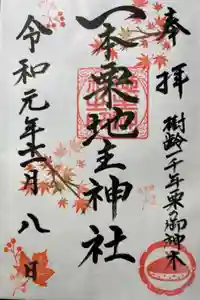 奉拝
樹齢一千年栗の御神木
一本栗地主神社
令和元年十一月八日